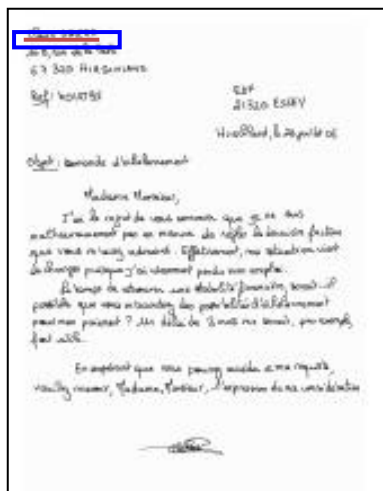 67 320 HIRSCHLAND
Réf :
EDF
21320 ESSEY
Objet : Demande d'échelonnement
Madame, Monsieur,
J'ai le regret de vous annoncer que je ne suis
malheureusement pas en mesure de régler la dernière facture
que vous m'avez adressée. Effectivement, ma situation vient
de changer puisque j'ai récemment perdu mon emploi.
Le temps de retrouver une stabilité financière, serait-il
possible que vous m'accordiez des possibilités d'échelonnement
pour mon paiement ? Un délai de 3 mois me serait, par exemple,
fort utile.
En espérant que vous pourrez accéder à ma requête,
veuillez recevoir, Madame, Monsieur, l'expression de ma considération